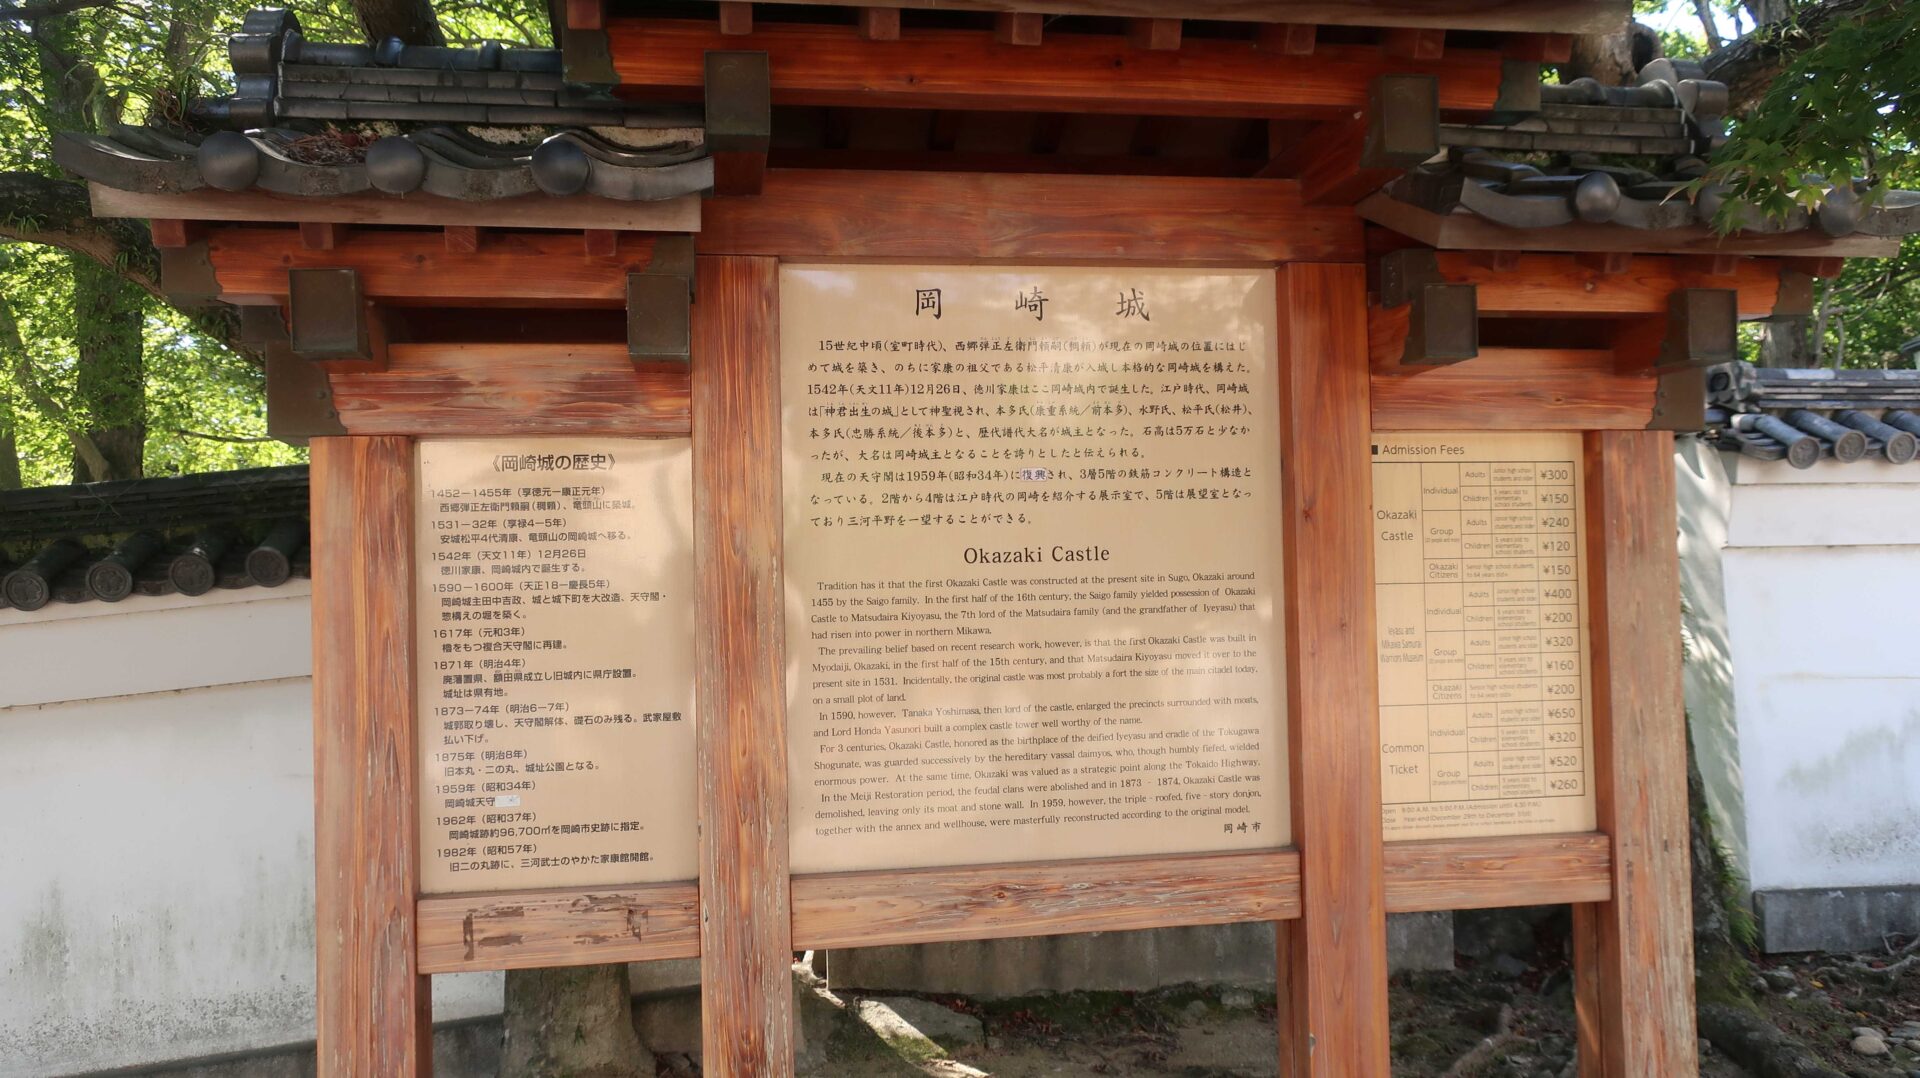 《岡崎城の歴史》
1452－1455年（享徳元－康正元年）
西郷弾正左衛門頼嗣（稠頼）、竜頭山に築城。
1531－32年（享禄4－5年）
安城松平4代清康、竜頭山の岡崎城へ移る。
1542年（天文11年）12月26日
徳川家康、岡崎城内で誕生する。
1590－1600年（天正18－慶長5年）
岡崎城主田中吉政、城と城下町を大改造、天守閣・
惣構えの堀を築く。
1617年（元和3年）
櫓をもつ複合天守閣に再建。
1871年（明治4年）
廃藩置県、額田県成立し旧城内に県庁設置。
城址は県有地。
1873－74年（明治6－7年）
城郭取り壊し、天守閣解体、礎石のみ残る。武家屋敷
払い下げ。
1875年（明治8年）
旧本丸・二の丸、城址公園となる。
1959年（昭和34年）
岡崎城天守
1962年（昭和37年）
岡崎城跡約96,700㎡を岡崎市史跡に指定。
1982年（昭和57年）
旧二の丸跡に、三河武士のやかた家康館開館。
岡崎城
15世紀中頃(室町時代)、西郷弾正左衛門頼嗣(稠頼)が現在の岡崎城の位置にはじ
めて城を築き、のちに家康の祖父である松平清康が入城し本格的な岡崎城を構えた。
1542年(天文11年)12月26日、徳川家康はここ岡崎城内で誕生した。江戸時代、岡崎城
は「神君出生の城」として神聖視され、本多氏(康重系統／前本多)、水野氏、松平氏(松井)、
本多氏(忠勝系統／後本多)と、歴代譜代大名が城主となった。石高は5万石と少なか
ったが、大名は岡崎城主となることを誇りとしたと伝えられる。
現在の天守閣は1959年(昭和34年)に復興され、3層5階の鉄筋コンクリート構造と
なっている。2階から4階は江戸時代の岡崎を紹介する展示室で、5階は展望室となっ
ており三河平野を一望することができる。
Okazaki Castle
Tradition has it that the first Okazaki Castle was constructed at the present site in Sugo, Okazaki around
1455 by the Saigo family. In the first half of the 16th century, the Saigo family yielded possession of Okazaki
Castle to Matsudaira Kiyoyasu, the 7th lord of the Matsudaira family (and the grandfather of Iyeyasu) that
had risen into power in northern Mikawa.
The prevailing belief based on recent research work, however, is that the first Okazaki Castle was built in
Myodaiji, Okazaki, in the first half of the 15th century, and that Matsudaira Kiyoyasu moved it over to the
present site in 1531. Incidentally, the original castle was most probably a fort the size of the main citadel today,
on a small plot of land.
In 1590, however, Tanaka Yoshimasa, then lord of the castle, enlarged the precincts surrounded with moats,
and Lord Honda Yasunori built a complex castle tower well worthy of the name.
For 3 centuries, Okazaki Castle, honored as the birthplace of the deified Iyeyasu and cradle of the Tokugawa
Shogunate, was guarded successively by the hereditary vassal daimyos, who, though humbly fiefed, wielded
enormous power. At the same time, Okazaki was valued as a strategic point along the Tokaido Highway.
In the Meiji Restoration period, the feudal clans were abolished and in 1873 - 1874, Okazaki Castle was
demolished, leaving only its moat and stone wall. In 1959, however, the triple - roofed, five - story donjon,
together with the annex and wellhouse, were masterfully reconstructed according to the original model.
岡崎市
■ Admission Fees
Okazaki Castle
Individual Adults Junior high school students and older ¥300
Children 5 years old to elementary school students ¥150
Group Adults Junior high school students and older ¥240
Children 5 years old to elementary school students ¥120
Okazaki Citizens Senior high school students to 64 years old ¥150
Ieyasu and Mikawa Samurai Warriors Museum
Individual Adults Junior high school students and older ¥400
Children 5 years old to elementary school students ¥200
Group Adults Junior high school students and older ¥320
Children 5 years old to elementary school students ¥160
Okazaki Citizens Senior high school students to 64 years old ¥200
Common Ticket
Individual Adults Junior high school students and older ¥650
Children 5 years old to elementary school students ¥320
Group Adults Junior high school students and older ¥520
Children 5 years old to elementary school students ¥260
Open 9:00 A.M. to 5:00 P.M. (Admission until 4:30 P.M.)
Close Year-end (December 29th to December 31st)